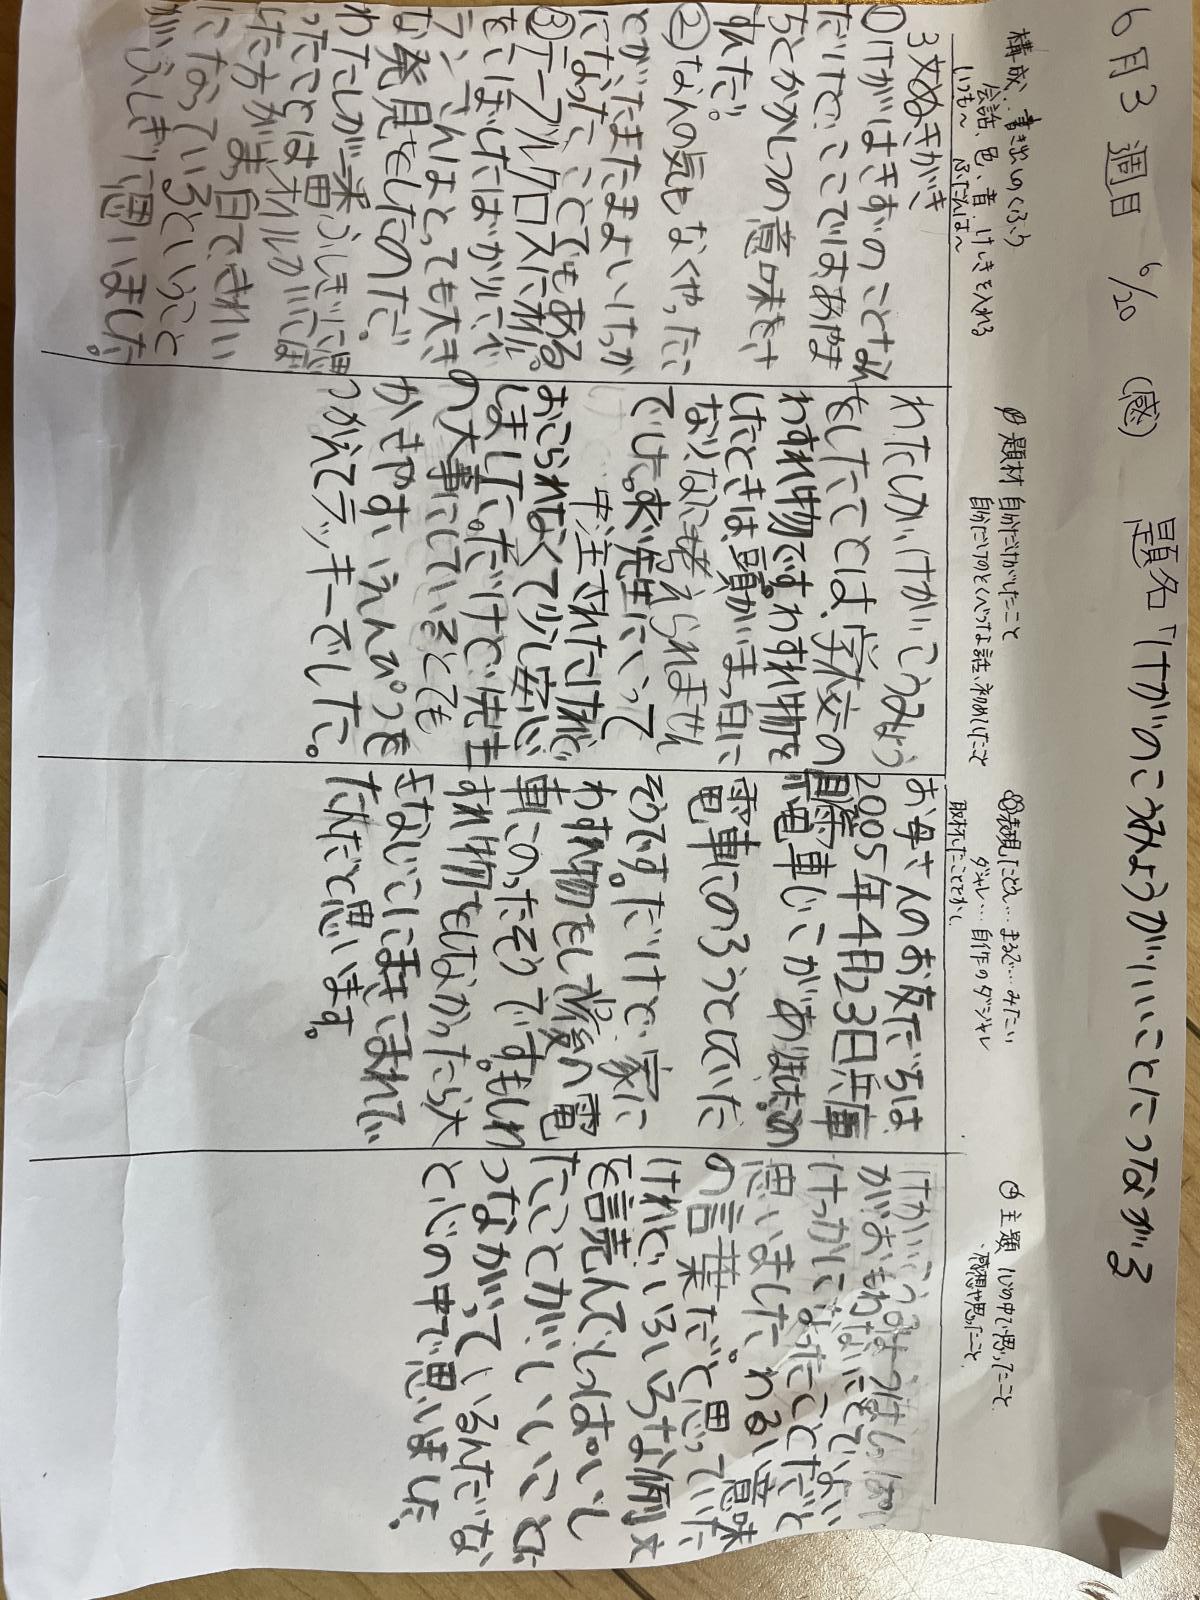 6月3週目 6/20 (感) 題名「けがのこうみょうがいいことにつながる
構成、書き出しのくふう
会話、色、音 けしきを入れる
いつも〜 ふだんは〜
3文ぬきがき
①けがはきずのことなん
だけど、ここではあやま
ちとかしつの意味をさ
すんだ。
②なんの気もなくやったこ
とがたまたまよいけっか
になったことでもある。
③テーブルクロスにオイル
をこぼしたばかりにでぶ
う、さんはとっても大き
な発見をしたのだ。
わたしが一番ふしぎに思
ったことはオイルがこぼ
した方がま白できれい
になっているということ
がふしぎに思いました。
題材 自分だけがしたこと
自分だけのとくべつな話、初めてしたこと
わたしがけがのこうみょう
をしたことは、学校の
わすれ物です。わすれ物を
したときは、頭がまっ白に
なりなにも考えられません
でした。先生にいって
中注されただけで
おこられなくて少し安心
しました。だけど、先生
の大事にしているとても
かきやすいえんぴつを
つかえてラッキーでした。
表現 たとえ…まるで…みたい
ダジャレ…自作のダジャレ
取材したことでかく
お母さんのお友だちは
2005年4月23日兵庫
県で電車じこがあったの
電車にのろうとしていた
そうです。だけど、家に
わすれ物をして後の電
車にのったそうです。もしわ
すれ物をしなかったら大
きなじこにまきこまれてい
たんだと思います。
④主題 心の中で思ったこと
・感想や思ったこと
けがのこうみょうはしっぱい
がおもわないことでいい
けっかになったことだと
思いました。わるい意味
の言葉だと思っていた
けれど、いろいろな例文
を読んでしっぱいし
たことがいいことに
つながっているんだな
と心の中で思いました。